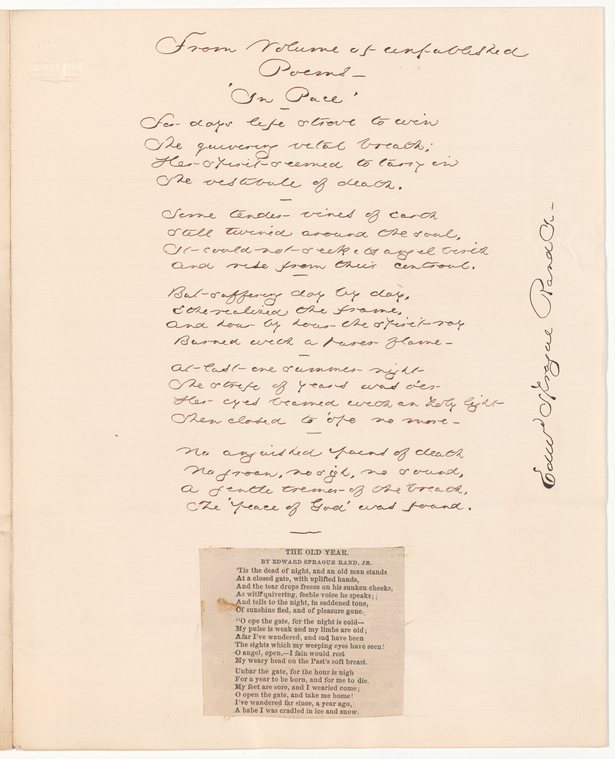 From Volume of unpublished
Poems—
'In Pace'
For days life strove to win
The quivering vital breath;
Her spirit seemed to tarry in
The vestibule of death.
Some tender vines of earth
Still twined around the soul,
It could not seek its angel birth
And rise from their controul.
But suffering day by day,
Etherealized the frame,
And hour by hour the spirit ray
Burned with a purer flame—
At last one summer night
The strife of years was o'er
Her eyes beamed with an holy light
Then closed to 'ope no more—
No anguished pains of death
No groan, no sigh, no sound,
A gentle tremor of the breath,
The 'peace of God' was found.
Edwd Sprague Rand Jr—
THE OLD YEAR.
BY EDWARD SPRAGUE RAND, JR.
'Tis the dead of night, and an old man stands
At a closed gate, with uplifted hands,
And the tear drops freeze on his sunken cheeks,
As with quivering, feeble voice he speaks;
And tells to the night, in saddened tone,
Of sunshine fled, and of pleasure gone.
"O ope the gate, for the night is cold—
My pulse is weak and my limbs are old;
Afar I've wandered, and sad have been
The sights which my weeping eyes have seen!
O angel, open,—I fain would rest
My weary head on the Past's soft breast.
Unbar the gate, for the hour is nigh
For a year to be born, and for me to die.
My feet are sore, and I wearied come;
O open the gate, and take me home!
I've wandered far since, a year ago,
A babe I was cradled in ice and snow.